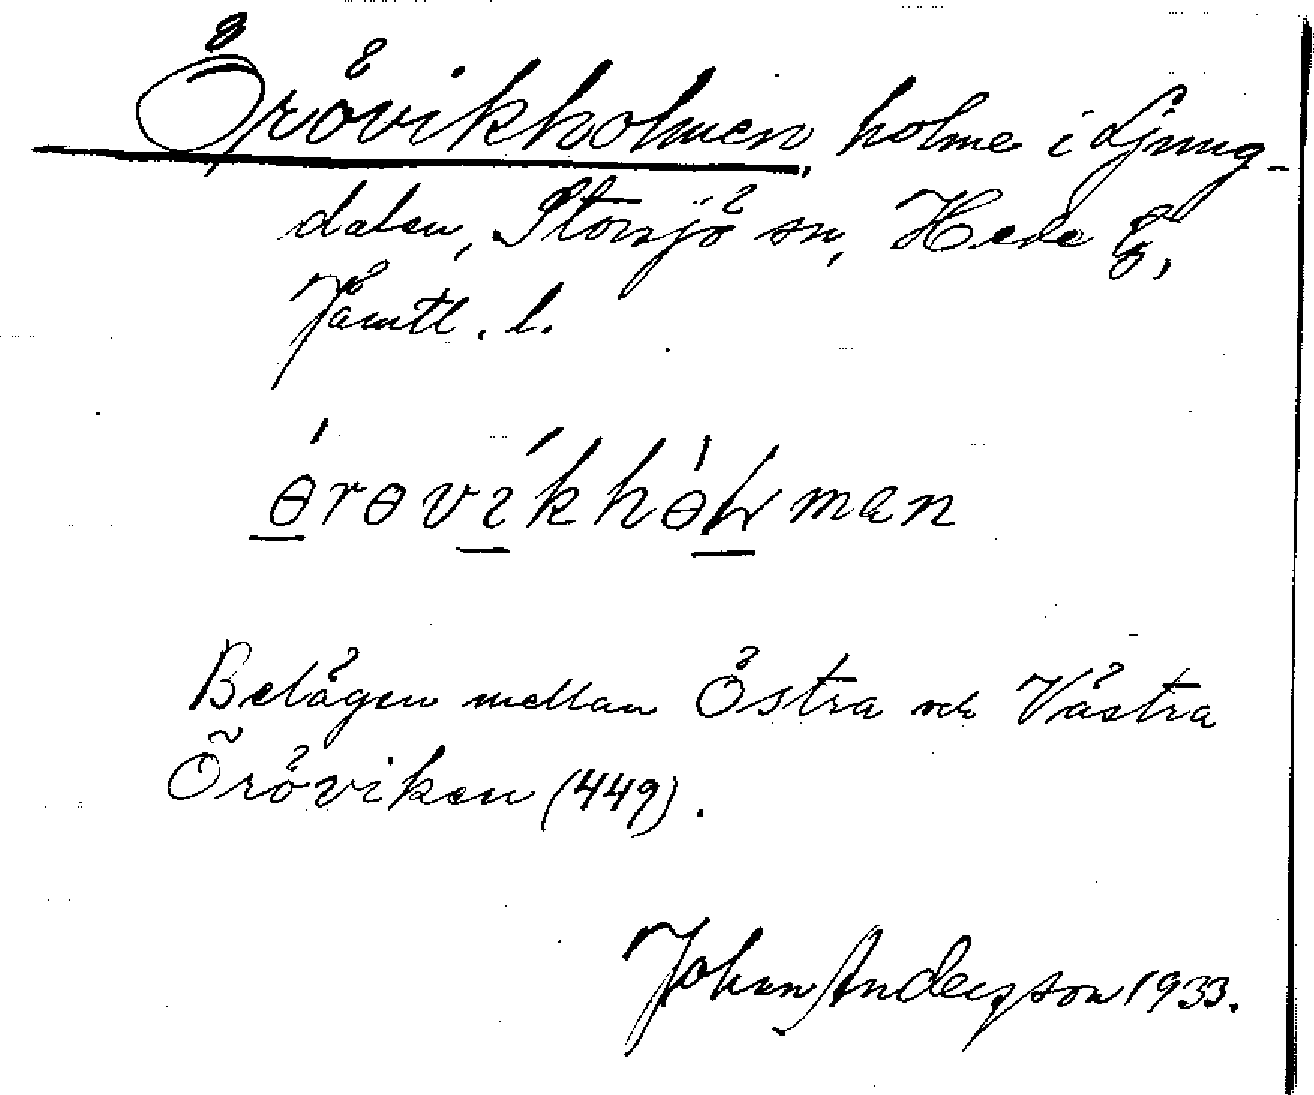 Örövikholmen, holme i Ljung-
dalen, Storsjö sn, Hede
Jämtl. l.
Belägen mellan Östra och Västra
Öröviken (449).
Johan Andersson 1933.